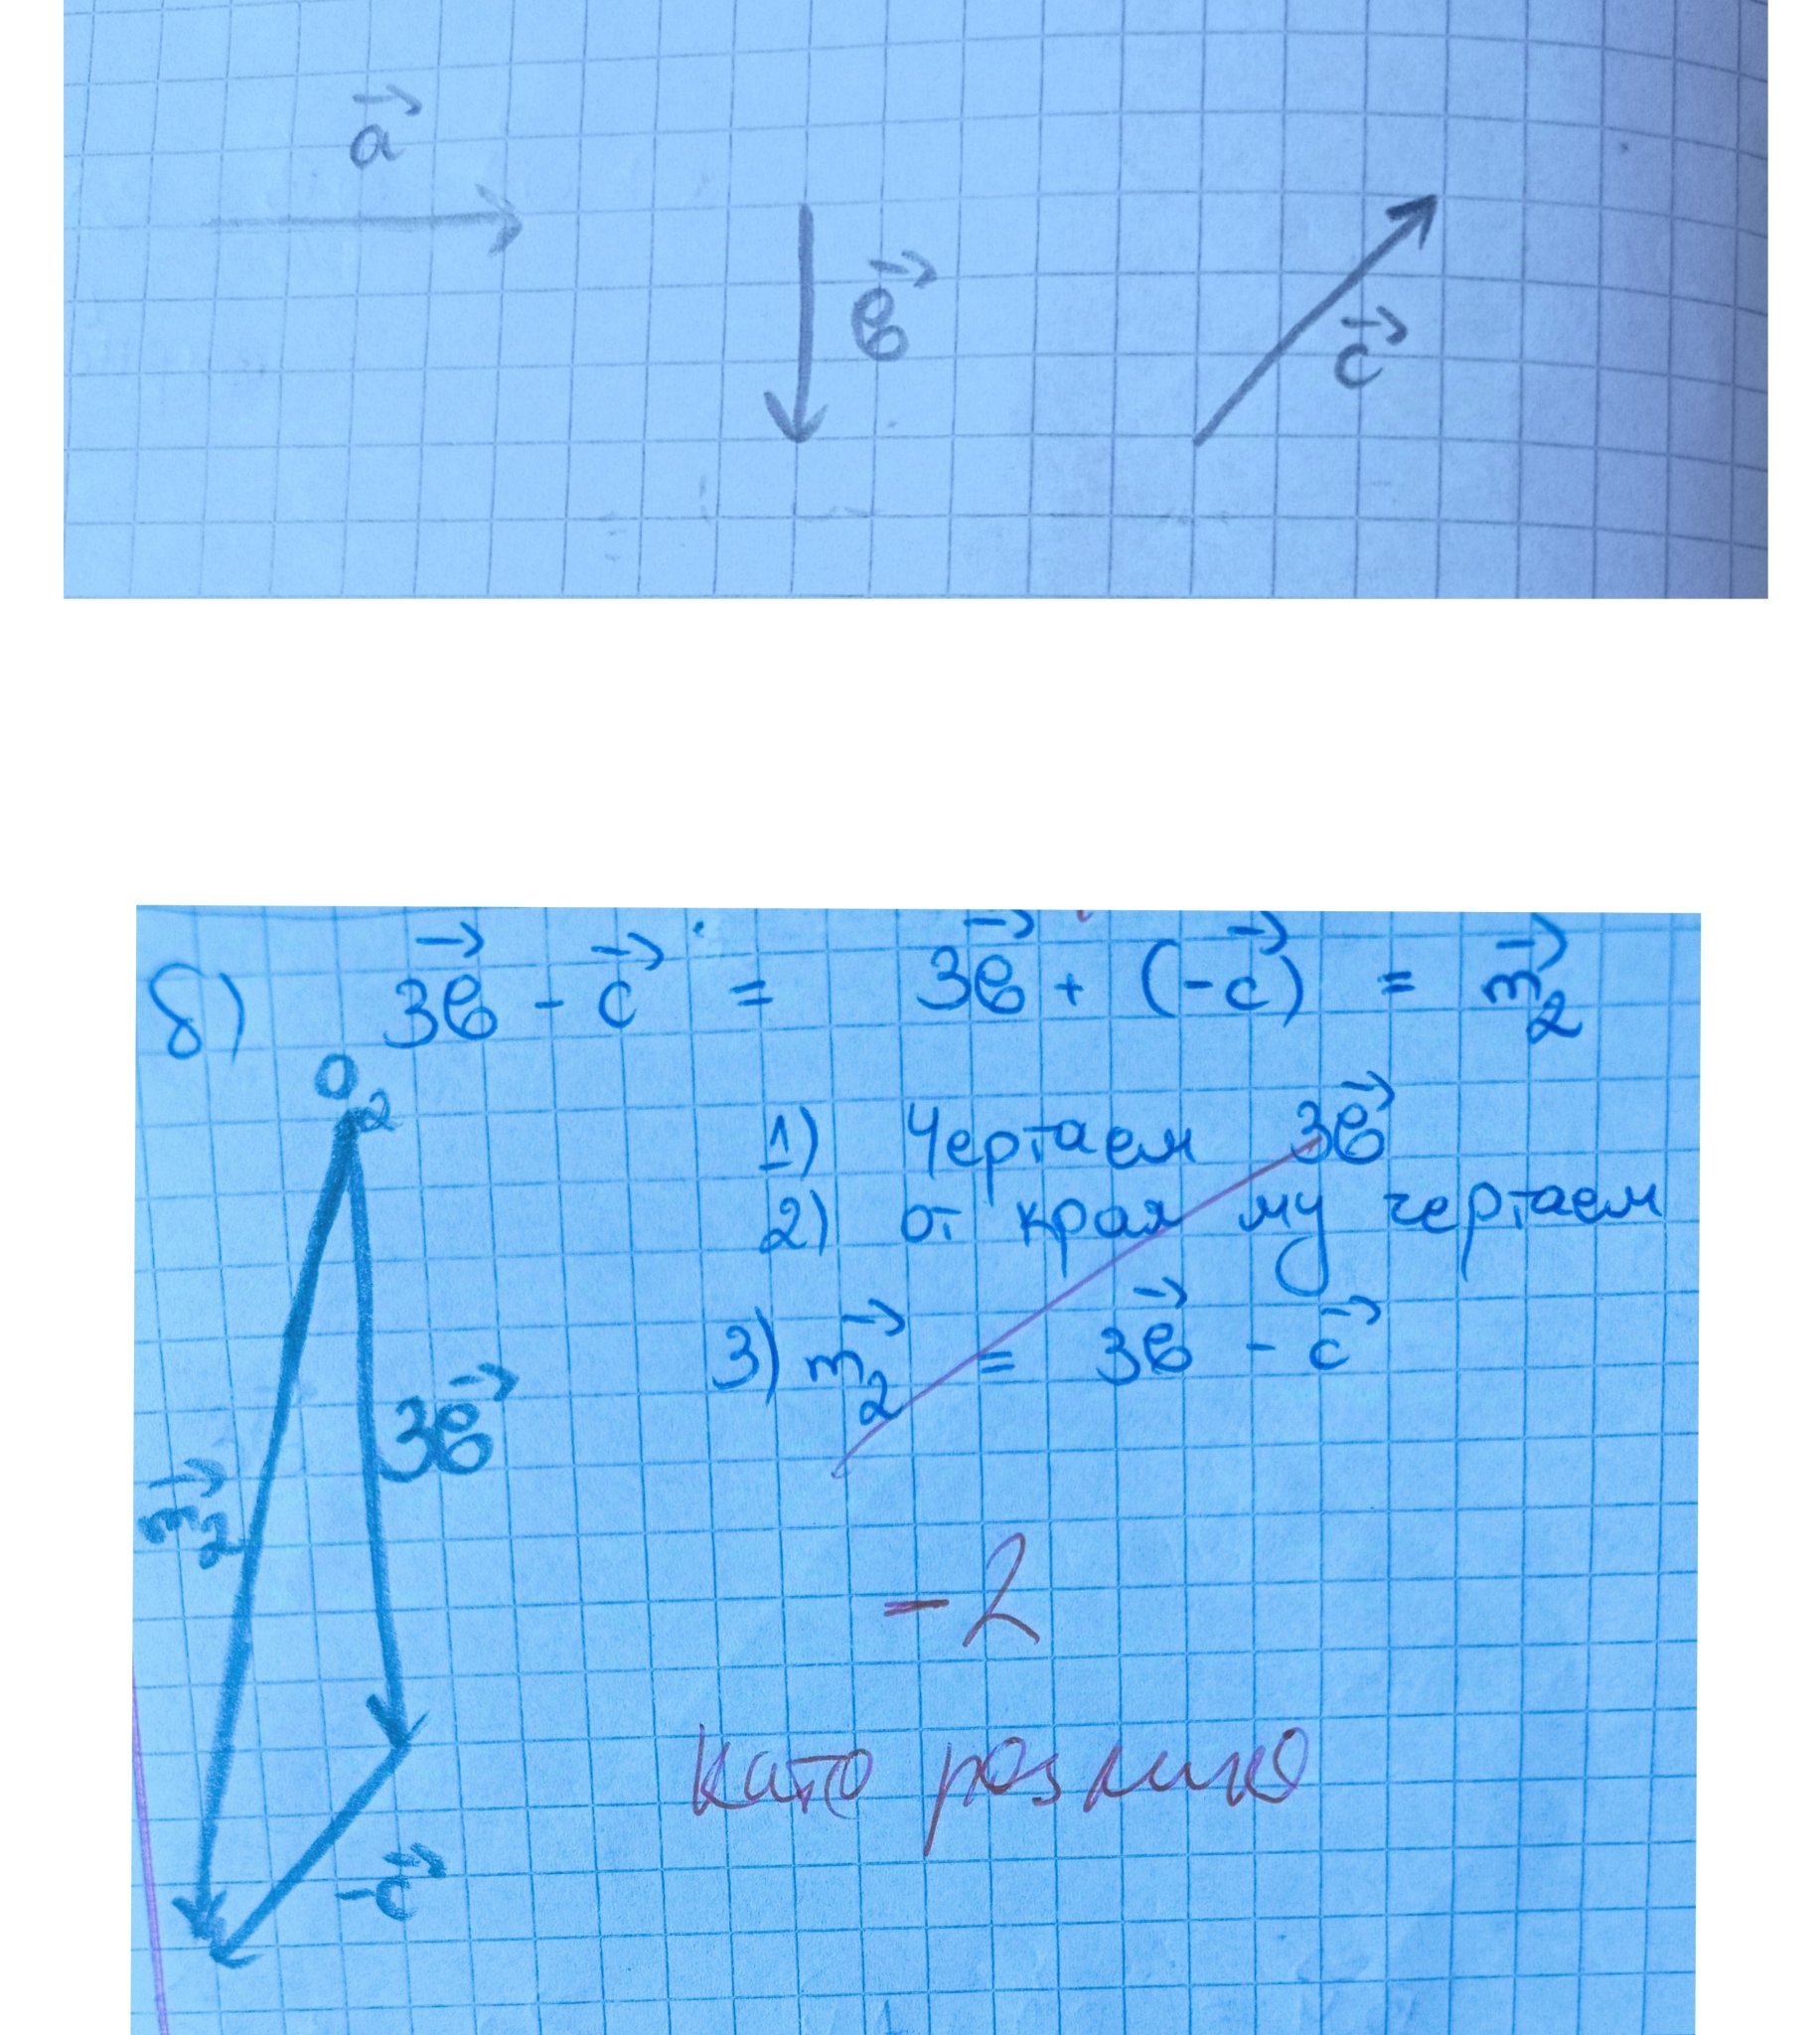 a⃗
b⃗
c⃗
б) 3b⃗ - c⃗ = 3b⃗ + (-c⃗) = m⃗₂
O₂
1) Чертаем 3b⃗
2) от края му чертаем
3) m⃗₂ = 3b⃗ - c⃗
3b⃗
m⃗₂
-2
като разлика
-c⃗